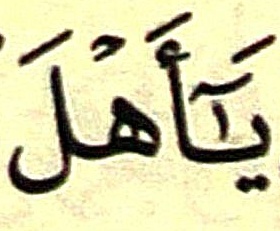 يَٰٓأَهْلَ